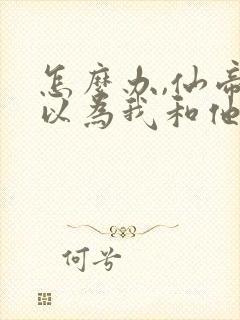 怎麼办,仙帝
以為我和他
何兮